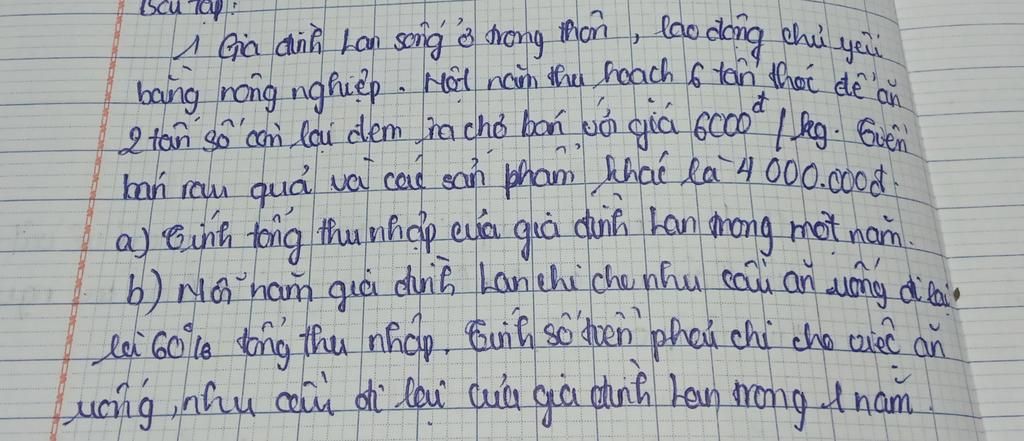 Bài tập:
1 Gia đình Lan sống ở nông thôn, lao động chủ yếu
bằng nông nghiệp. Một năm thu hoạch 6 tấn thóc để ăn
2 tấn số còn lại đem ra chợ bán với giá 6000đ/kg. Tiền
bán rau quả và các sản phẩm khác là 4 000.000đ.
a) Tính tổng thu nhập của gia đình Lan trong một năm.
b) Mỗi năm gia đình Lan chi cho nhu cầu ăn uống đi lại
là 60% tổng thu nhập. Tính số tiền phải chi cho việc ăn
uống, nhu cầu đi lại của gia đình Lan trong 1 năm.